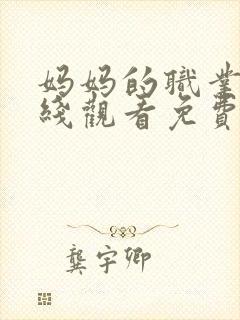 妈妈的職業
綫觀看免費
龔宇卿